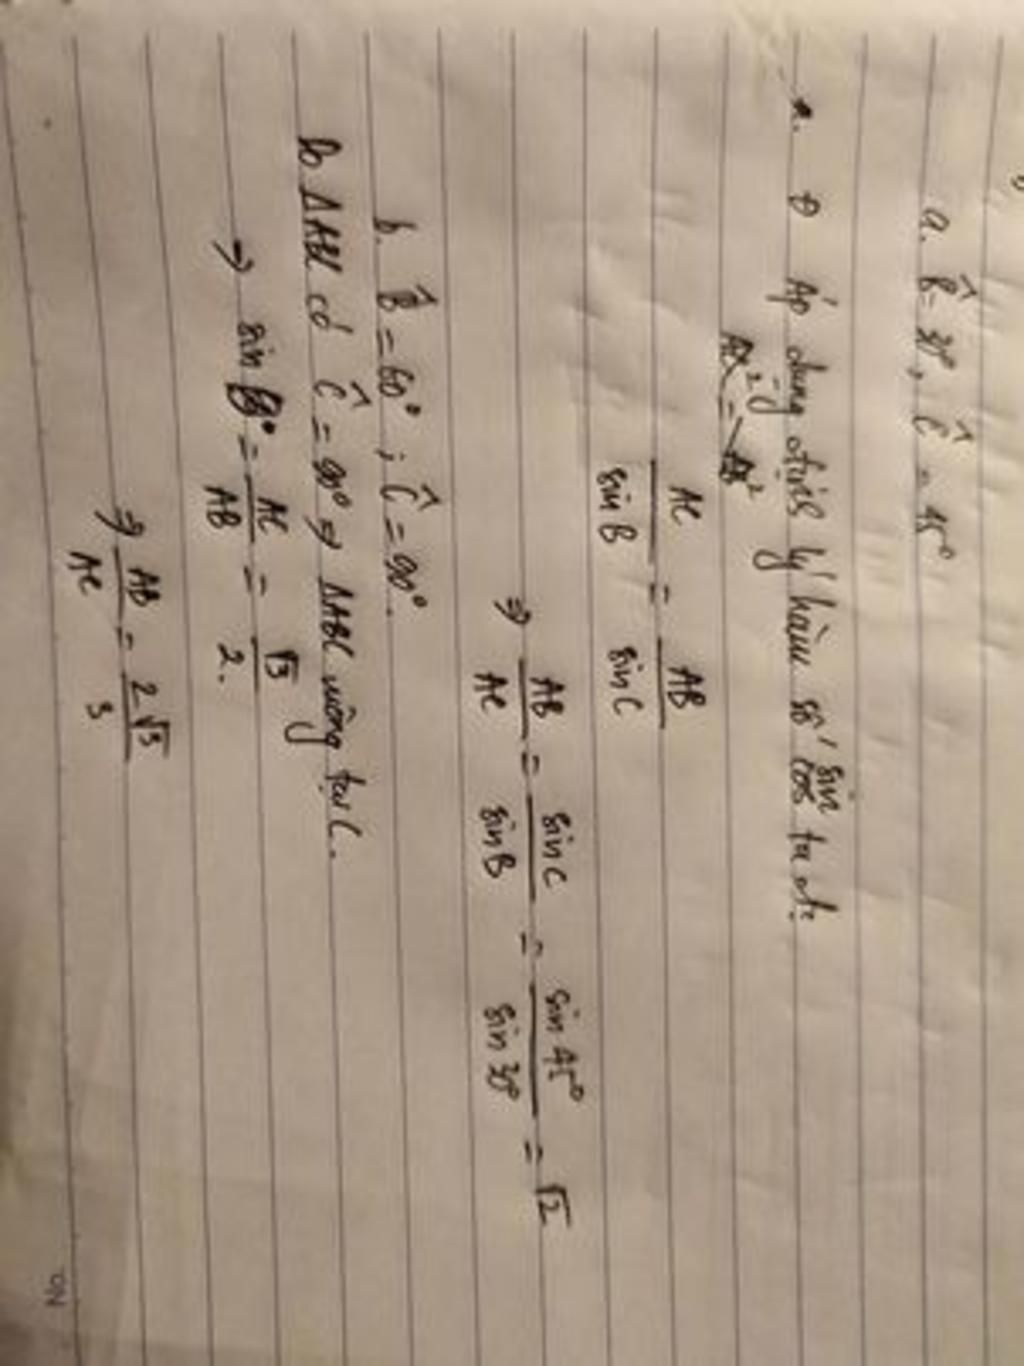 a. B̂ = 30°, Ĉ = 45°
Áp dụng định lý hàm số sin ta có:
AC² = AB²
AC/sin B = AB/sin C
⇒ AB/AC = sin C/sin B = sin 45°/sin 30° = √2
b. B̂ = 60° ; Ĉ = 90°.
Do ΔABC có Ĉ = 90° ⇒ ΔABC vuông tại C.
⇒ sin 60° = AC/AB = √3/2.
⇒ AB/AC = 2√3/3
No